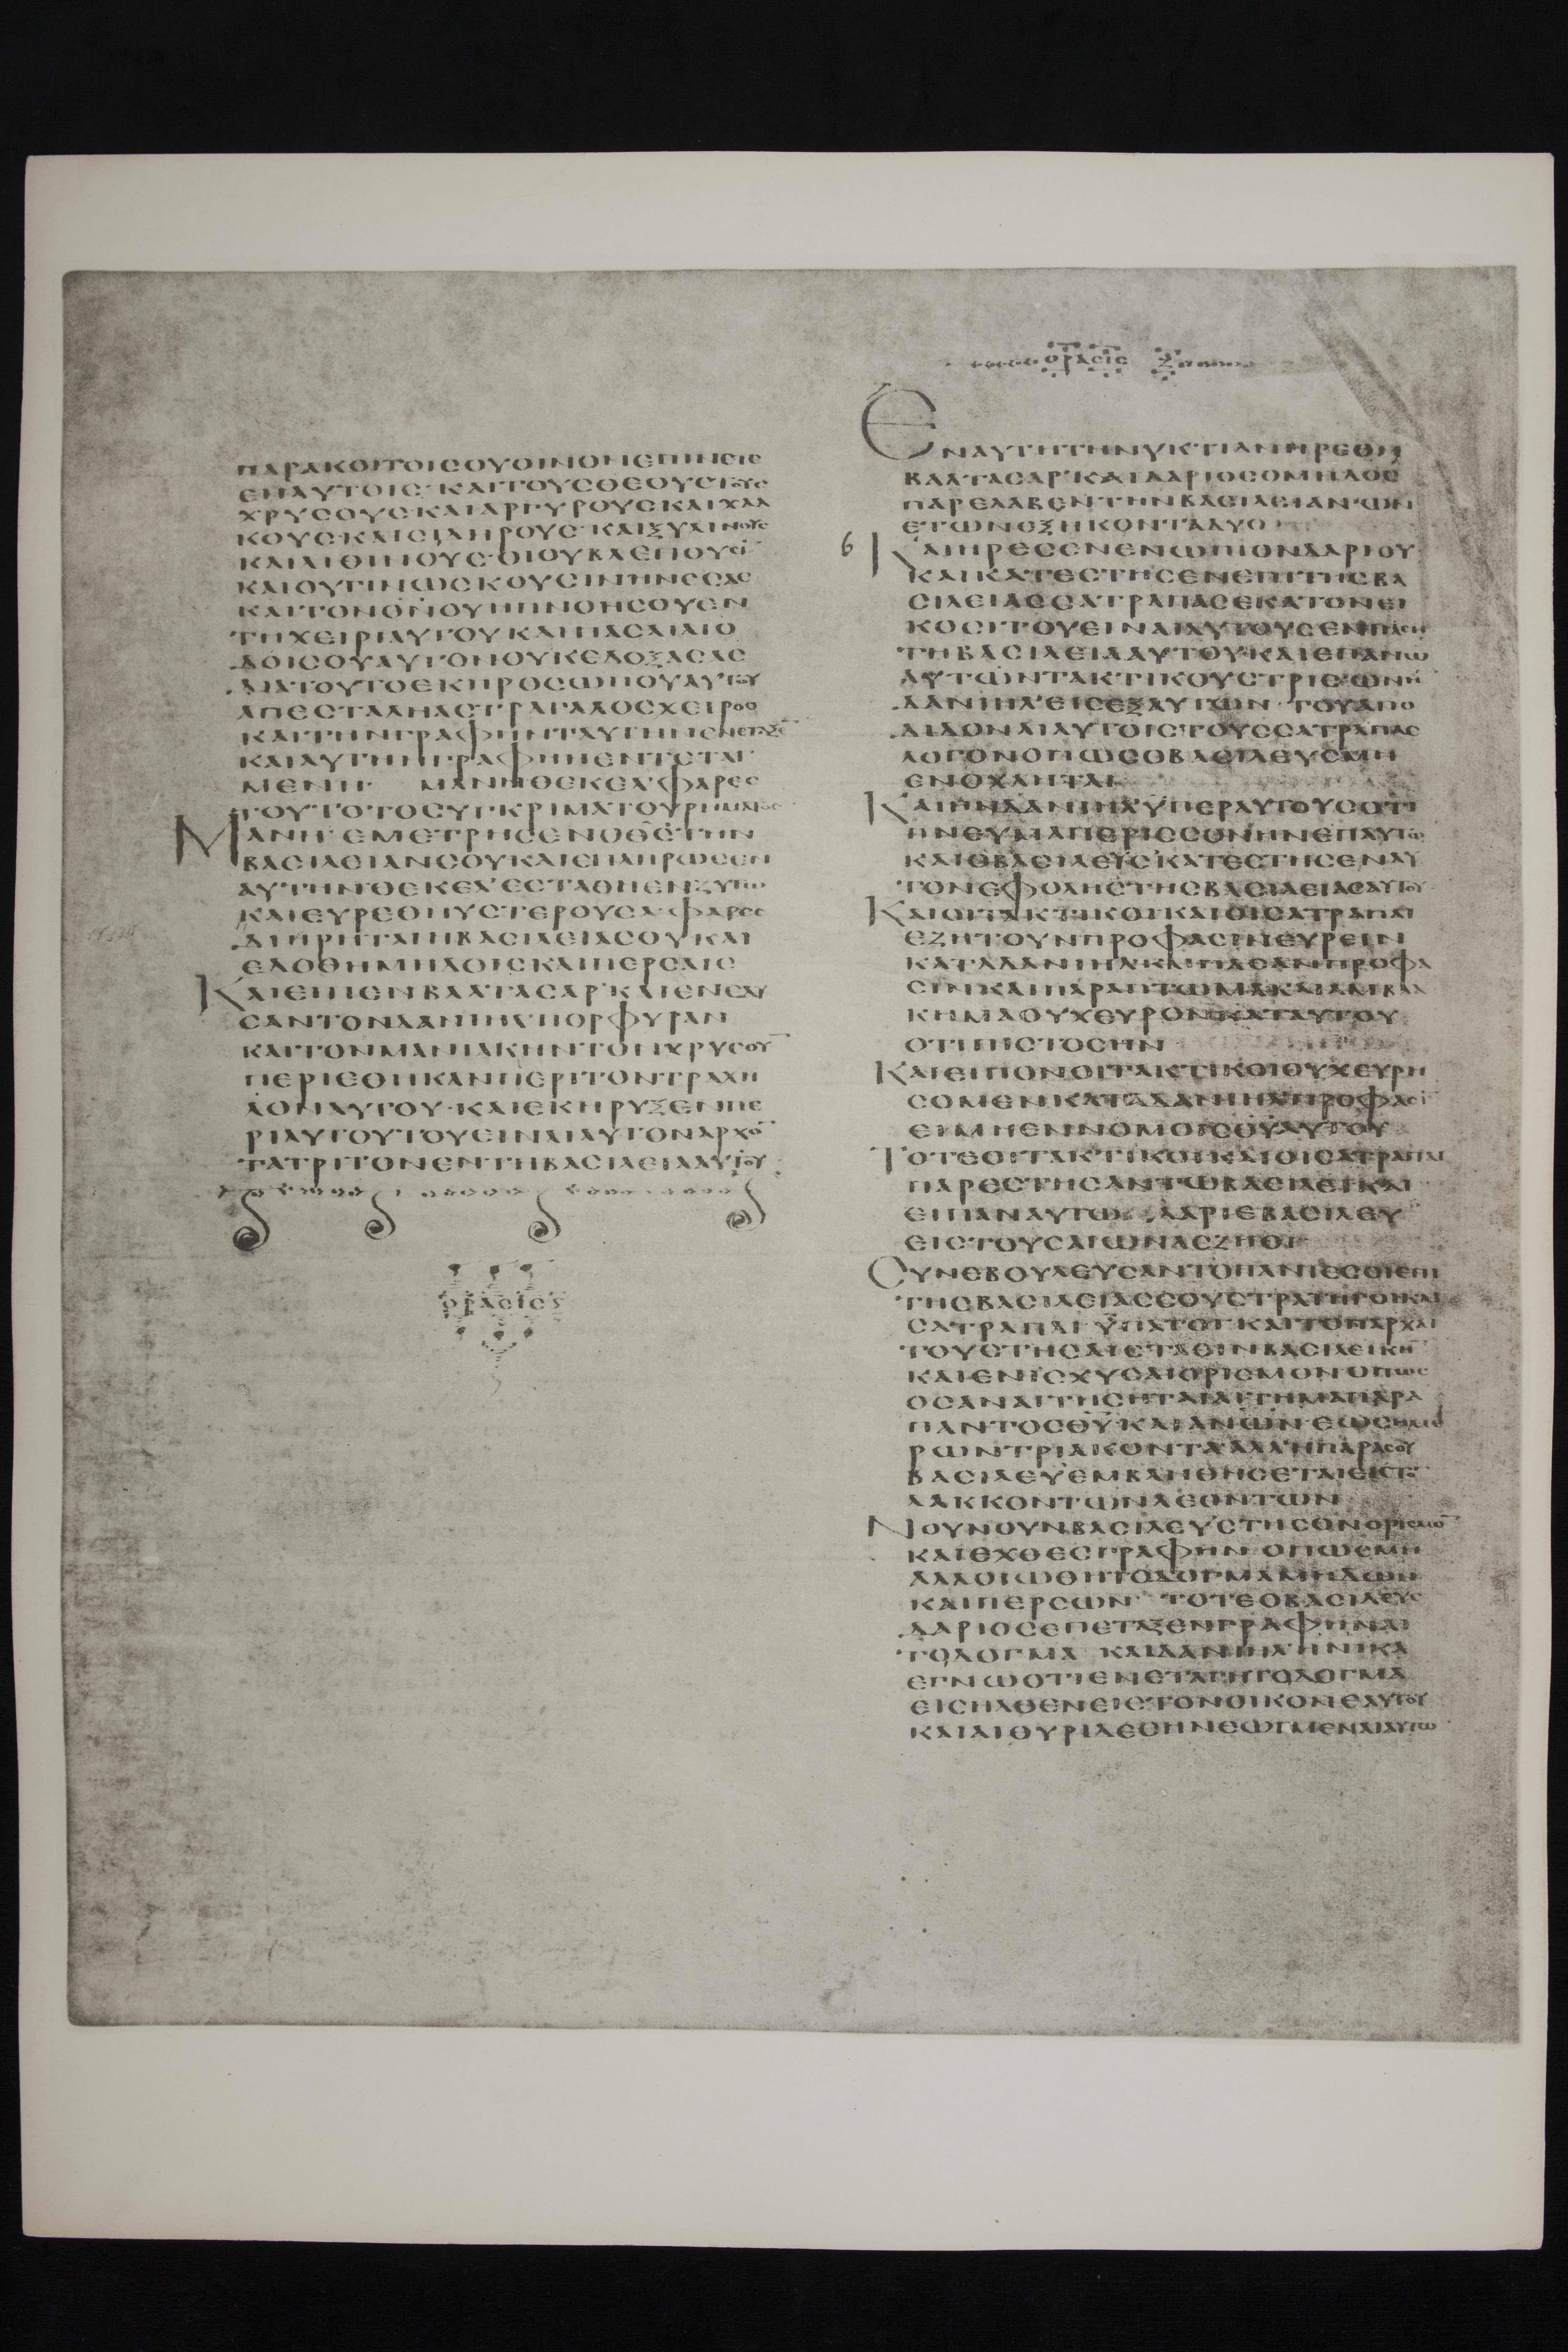 ΠΑΡΑΚΟΙΤΟΙΣΟΥΟΙΝΟΝΕΠΙΝΕΤΕ
ΕΝΑΥΤΟΙΣ·ΚΑΙΤΟΥΣΘΕΟΥΣΤΟΥΣ
ΧΡΥΣΟΥΣΚΑΙΑΡΓΥΡΟΥΣΚΑΙΧΑΛ
ΚΟΥΣΚΑΙΣΙΔΗΡΟΥΣΚΑΙΞΥΛΙΝΟΥΣ
ΚΑΙΛΙΘΙΝΟΥΣ·ΟΙΟΥΒΛΕΠΟΥΣΙ̅
ΚΑΙΟΥΓΙΝΩΣΚΟΥΣΙΝΗΝΕΣΑΣ
ΚΑΙΤΟΝΘΝ̅ΟΥΗΠΝΟΗΣΟΥΕΝ
ΤΗΧΕΙΡΙΑΥΤΟΥΚΑΙΠΑΣΑΙΑΙΟ
ΔΟΙΣΟΥΑΥΤΟΝΟΥΚΕΔΟΞΑΣΑΣ
ΔΙΑΤΟΥΤΟΕΚΠΡΟΣΩΠΟΥΑΥΤΟΥ
ΑΠΕΣΤΑΛΗΑΣΤΡΑΓΑΛΟΣΧΕΙΡΟΣ
ΚΑΙΤΗΝΓΡΑΦΗΝΤΑΥΤΗΝΕΝΕΤΑΞΕ̅
ΚΑΙΑΥΤΗΗΓΡΑΦΗΗΕΝΤΕΤΑΓ
ΜΕΝΗ· ΜΑΝΗΘΕΚΕΛ᾽ΦΑΡΕΣ
ΤΟΥΤΟΤΟΣΥΓΚΡΙΜΑΤΟΥΡΗΜΑΤΟΣ
ΜΑΝΗ·ΕΜΕΤΡΗΣΕΝΟΘΣ̅ΤΗΝ
ΒΑΣΙΛΕΙΑΝΣΟΥΚΑΙΕΠΛΗΡΩΣΕΝ
ΑΥΤΗΝΘΕΚΕΛ᾽ΕΣΤΑΘΗΕΝΖΥΓΩ
ΚΑΙΕΥΡΕΘΗΥΣΤΕΡΟΥΣΑ·ΦΑΡΕΣ
ΔΙΗΡΗΤΑΙΗΒΑΣΙΛΕΙΑΣΟΥΚΑΙ
ΕΔΟΘΗΜΗΔΟΙΣΚΑΙΠΕΡΣΑΙΣ
ΚΑΙΕΙΠΕΝΒΑΛΤΑΣΑΡ᾽ΚΑΙΕΝΕΔΥ
ΣΑΝΤΟΝΔΑΝΙΗΛ᾽ΠΟΡΦΥΡΑΝ
ΚΑΙΤΟΝΜΑΝΙΑΚΗΝΤΟΝΧΡΥΣΟΥ̅
ΠΕΡΙΕΘΗΚΑΝΠΕΡΙΤΟΝΤΡΑΧΗ
ΛΟΝΑΥΤΟΥ·ΚΑΙΕΚΗΡΥΞΕΝΠΕ
ΡΙΑΥΤΟΥΤΟΥΕΙΝΑΙΑΥΤΟΝΑΡΧΟ̅
ΤΑΤΡΙΤΟΝΕΝΤΗΒΑΣΙΛΕΙΑΑΥΤΟΥ
ΟΡΑΣΙΣ
ΟΡΑΣΙΣ Ζ
ΕΝΑΥΤΗΤΗΝΥΚΤΙΑΝΗΡΕΘΗ
ΒΑΛΤΑΣΑΡ᾽ΚΑΙΔΑΡΙΟΣΟΜΗΔΟΣ
ΠΑΡΕΛΑΒΕΝΤΗΝΒΑΣΙΛΕΙΑΝΩΝ
ΕΤΩΝΕΞΗΚΟΝΤΑΔΥΟ
6 ΚΑΙΗΡΕΣΕΝΕΝΩΠΙΟΝΔΑΡΙΟΥ
ΚΑΙΚΑΤΕΣΤΗΣΕΝΕΠΙΤΗΣΒΑ
ΣΙΛΕΙΑΣΣΑΤΡΑΠΑΣΕΚΑΤΟΝΕΙ
ΚΟΣΙΤΟΥΕΙΝΑΙΑΥΤΟΥΣΕΝΠΑΣΗ
ΤΗΒΑΣΙΛΕΙΑΑΥΤΟΥΚΑΙΕΠΑΝΩ
ΑΥΤΩΝΤΑΚΤΙΚΟΥΣΤΡΙΣΩΝΗ̅
ΔΑΝΙΗΛ᾽ΕΙΣΕΞΑΥΤΩΝ·ΤΟΥΑΠΟ
ΔΙΔΟΝΑΙΑΥΤΟΙΣΤΟΥΣΣΑΤΡΑΠΑΣ
ΛΟΓΟΝΟΠΩΣΟΒΑΣΙΛΕΥΣΜΗ
ΕΝΟΧΛΗΤΑΙ
ΚΑΙΗΝΔΑΝΙΗΛ᾽ΥΠΕΡΑΥΤΟΥΣΟΤΙ
ΠΝΕΥΜΑΠΕΡΙΣΣΟΝΗΝΕΠΑΥΤΩ
ΚΑΙΟΒΑΣΙΛΕΥΣΚΑΤΕΣΤΗΣΕΝΑΥ
ΤΟΝΕΦΟΛΗΣΤΗΣΒΑΣΙΛΕΙΑΣΑΥΤΟΥ
ΚΑΙΟΙΤΑΚΤΙΚΟΙΚΑΙΟΙΣΑΤΡΑΠΑΙ
ΕΖΗΤΟΥΝΠΡΟΦΑΣΙΝΕΥΡΕΙΝ
ΚΑΤΑΔΑΝΙΗΛ᾽ΚΑΙΠΑΣΑΝΠΡΟΦΑ
ΣΙΝΚΑΙΠΑΡΑΠΤΩΜΑΚΑΙΑΜΒΛΑ
ΚΗΜΑΟΥΧΕΥΡΟΝΚΑΤΑΥΤΟΥ
ΟΤΙΠΙΣΤΟΣΗΝ
ΚΑΙΕΙΠΟΝΟΙΤΑΚΤΙΚΟΙΟΥΧΕΥΡΗ
ΣΟΜΕΝΚΑΤΑΔΑΝΙΗΛ᾽ΠΡΟΦΑΣΙ̅
ΕΙΜΗΕΝΝΟΜΟΙΣΘΥ̅ΑΥΤΟΥ
ΤΟΤΕΟΙΤΑΚΤΙΚΟΙΚΑΙΟΙΣΑΤΡΑΠΑΙ
ΠΑΡΕΣΤΗΣΑΝΤΩΒΑΣΙΛΕΙΚΑΙ
ΕΙΠΑΝΑΥΤΩ ΔΑΡΙΕΒΑΣΙΛΕΥ
ΕΙΣΤΟΥΣΑΙΩΝΑΣΖΗΘΙ
ΣΥΝΕΒΟΥΛΕΥΣΑΝΤΟΠΑΝΤΕΣΟΙΕΠΙ
ΤΗΣΒΑΣΙΛΕΙΑΣΣΟΥΣΤΡΑΤΗΓΟΙΚΑΙ
ΣΑΤΡΑΠΑΙ ΥΠΑΤΟΙΚΑΙΤΟΠΑΡΧΑΙ
ΤΟΥΣΤΗΣΑΙΣΤΑΣΙΝΒΑΣΙΛΕΙΚΗ̅
ΚΑΙΕΝΙΣΧΥΣΑΙΟΡΙΣΜΟΝΟΠΩΣ
ΟΣΑΝΑΙΤΗΣΗΤΑΙΑΙΤΗΜΑΠΑΡΑ
ΠΑΝΤΟΣΘΥ̅ΚΑΙΑΝΩΝ̅ΕΩΣΗΜΕ
ΡΩΝΤΡΙΑΚΟΝΤΑΑΛΛ᾽ΗΠΑΡΑΣΟΥ
ΒΑΣΙΛΕΥΕΜΒΛΗΘΗΣΕΤΑΙΕΙΣΤΟ̅
ΛΑΚΚΟΝΤΩΝΛΕΟΝΤΩΝ
ΝΟΥΝΟΥΝΒΑΣΙΛΕΥΣΤΗΣΟΝΟΡΙΣΜΟ̅
ΚΑΙΕΧΘΕΣΓΡΑΦΗΝ ΟΠΩΣΜΗ
ΑΛΛΟΙΩΘΗΤΟΔΟΓΜΑΜΗΔΩΝ
ΚΑΙΠΕΡΣΩΝ ΤΟΤΕΟΒΑΣΙΛΕΥΣ
ΔΑΡΙΟΣΕΠΕΤΑΞΕΝΓΡΑΦΗΝΑΙ
ΤΟΔΟΓΜΑ ΚΑΙΔΑΝΙΗΛ᾽ΗΝΙΚΑ
ΕΓΝΩΟΤΙΕΝΕΤΑΓΗΤΟΔΟΓΜΑ
ΕΙΣΗΛΘΕΝΕΙΣΤΟΝΟΙΚΟΝΕΑΥΤΟΥ
ΚΑΙΑΙΘΥΡΙΔΕΣΗΝΕΩΓΜΕΝΑΙΑΥΤΩ